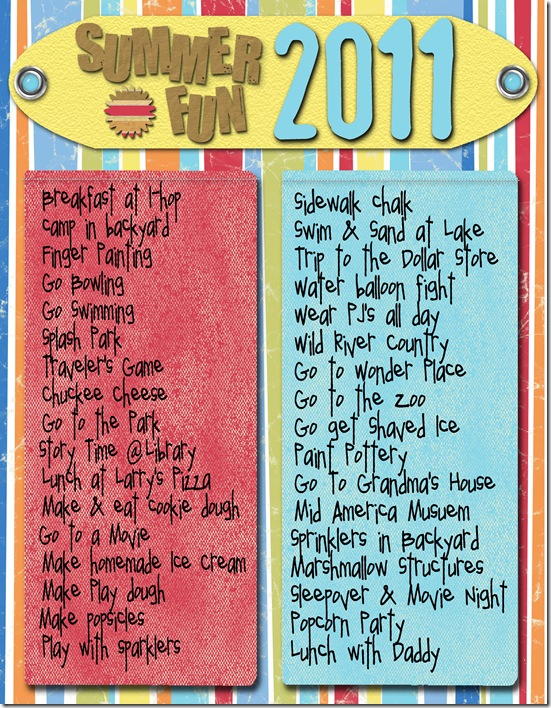 SUMMER
FUN
2011
Breakfast at I-hop
camp in backyard
Finger Painting
Go Bowling
Go Swimming
Splash Park
Traveler's Game
Chuckee Cheese
Go to the Park
Story Time @Library
Lunch at Larry's Pizza
Make & eat cookie dough
Go to a Movie
Make homemade Ice Cream
Make Play dough
Make popsicles
Play with sparklers
Sidewalk chalk
Swim & Sand at Lake
Trip to the Dollar Store
Water balloon fight
Wear PJ's all day
Wild River Country
Go to Wonder Place
Go to the Zoo
Go get Shaved Ice
Paint Pottery
Go to Grandma's House
Mid America Musuem
Sprinklers in Backyard
Marshmallow Structures
Sleepover & Movie Night
Popcorn Party
Lunch with Daddy